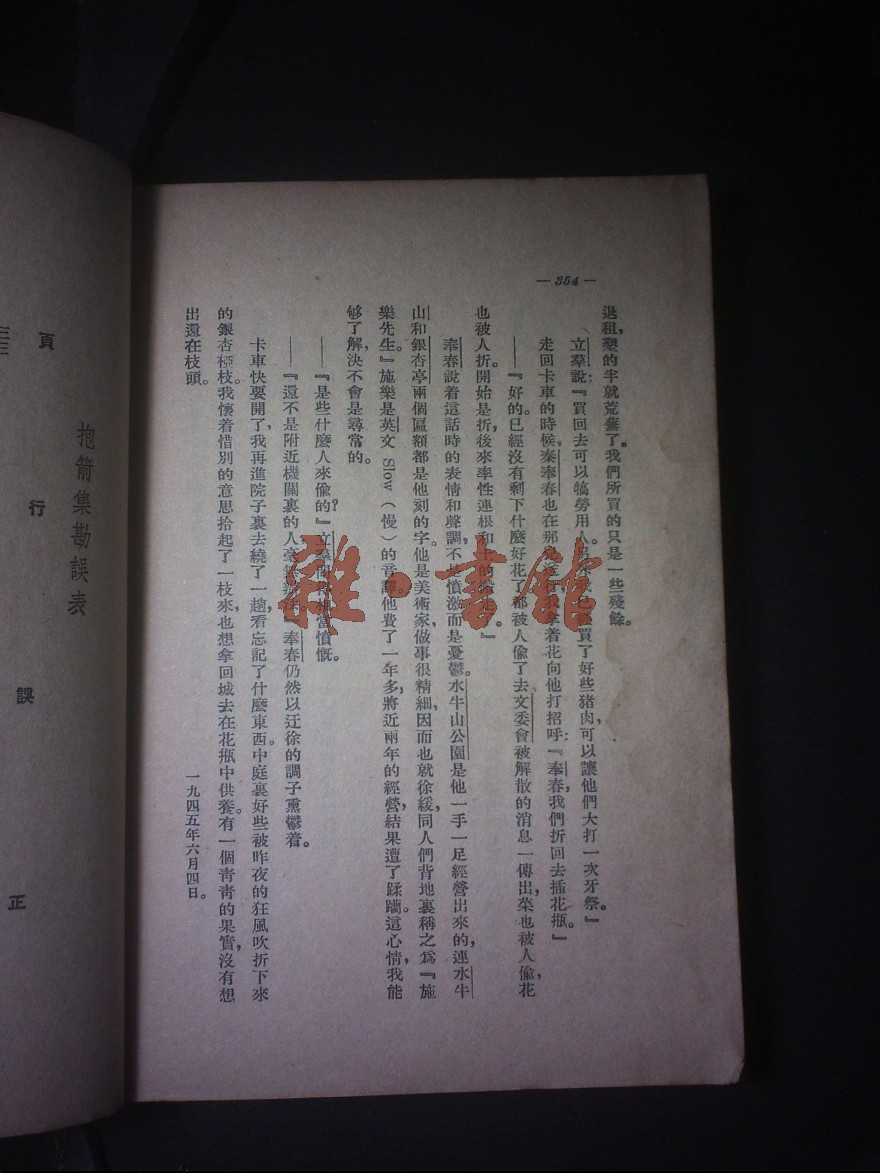 — 354 —
退租，墾的半就荒蕪了。我們所買的只是一些殘餘。
立羣說：『買回去可以犒勞用人。買了好些猪肉，可以讓他們大打一次牙祭。』
走回卡車的時候，秦奉春也在那兒着花向他打招呼：『奉春，我們折回去插花瓶。』
——『好的。已經沒有剩下什麼好花了，都被人偸了去。文委會被解散的消息一傳出，菜也被人偸，花
也被人折。開始是折，後來率性連根和土的。』
奉春說着這話時的表情和聲調，不是憤激而是憂鬱。水牛山公園是他一手一足經營出來的，連水牛
山和銀杏亭兩個匾額都是他刻的字。他是美術家，做事很精細，因而也就徐緩，同人們背地裏稱之爲『施
樂先生。』施樂是英文 Slow（慢）的音譯。他費了一年多，將近兩年的經營，結果遭了蹂躪。這心情，我能
够了解，決不會是尋常的。
——『是些什麼人來偸的？』立羣相當憤慨。
——『還不是附近機關裏的人，毫無』奉春仍然以迂徐的調子熏鬱着。
卡車快要開了，我再進院子裏去繞了一趟，看忘記了什麼東西。中庭裏好些被昨夜的狂風吹折下來
的銀杏椏枝。我懷着惜別的意思拾起了一枝來，也想拿回城去在花瓶中供養。有一個靑靑的果實，沒有想
出還在枝頭。
一九四五年六月四日。
抱箭集勘誤表
頁 行 誤 正
雜·書館